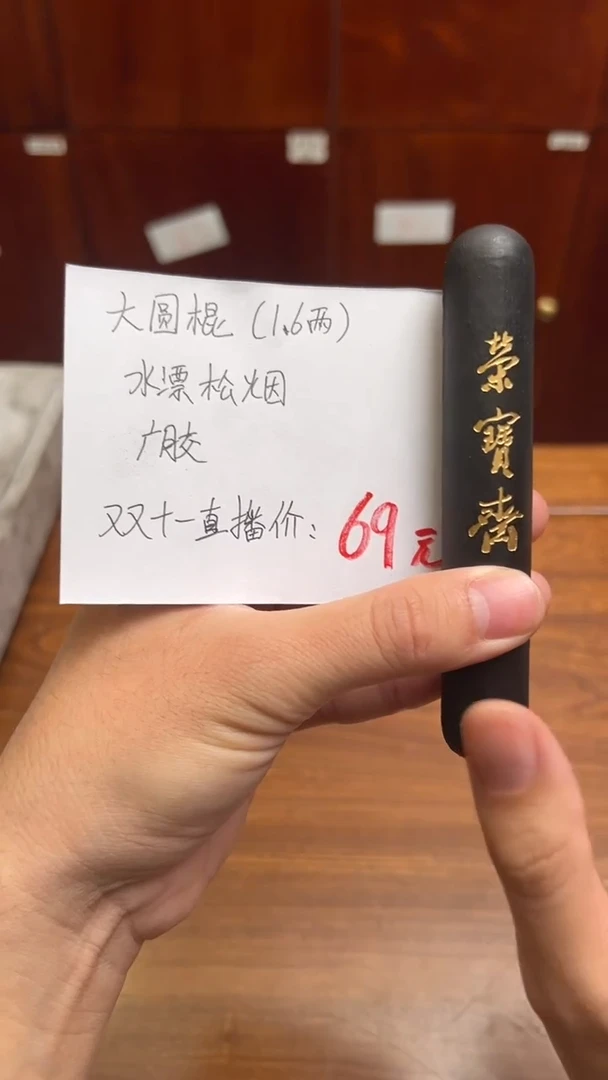 大圆棍（1.6两）
水漂松烟
广胶
双十一直播价：69元
榮寶齋